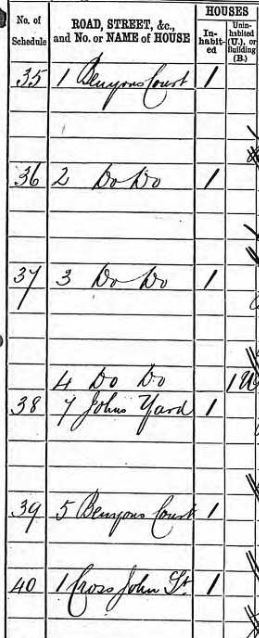 No. of Schedule ROAD, STREET, &c., and No. or NAME of HOUSE HOUSES In-habit-ed Unin-habited (U.), or Building (B.)
35 1 Benyons Court 1
36 2 Do Do 1
37 3 Do Do 1
4 Do Do 1 U
38 7 Johns Yard 1
39 5 Benyons Court 1
40 1 Cross John St. 1